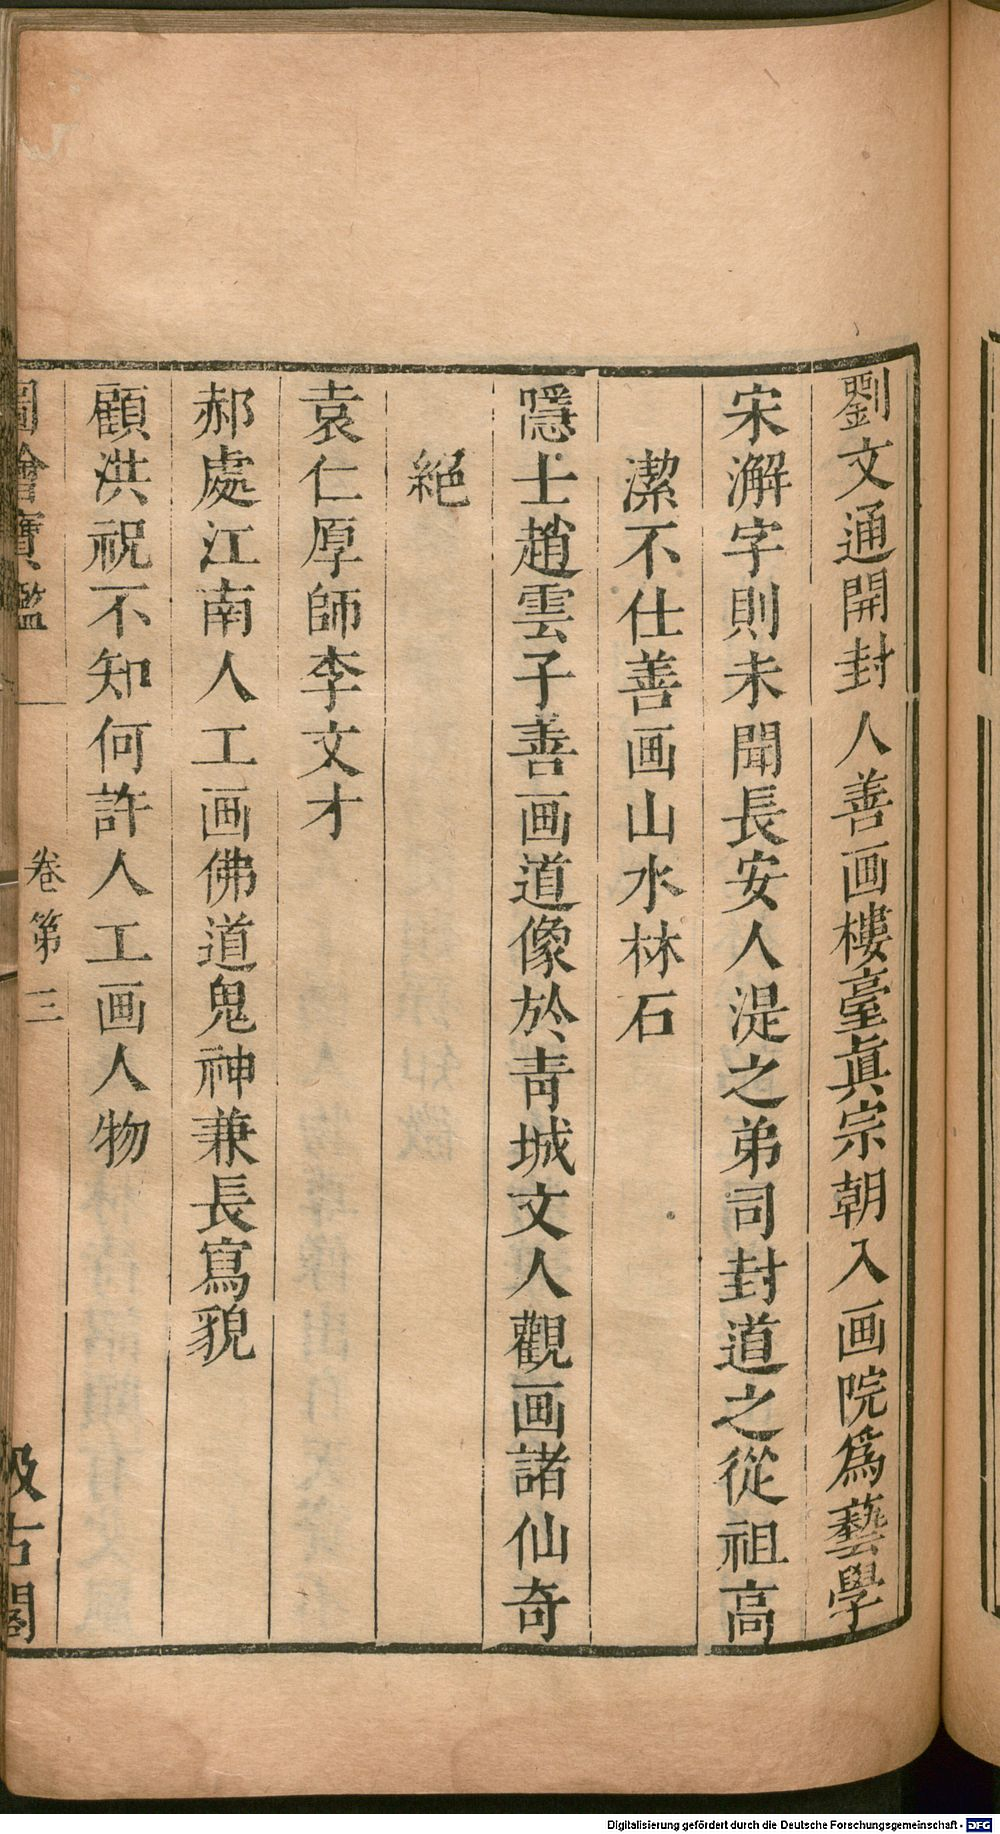 劉文通開封人善画樓臺眞宗朝入画院爲藝學
宋澥字則未聞長安人湜之弟司封道之從祖高
潔不仕善画山水林石
隱士趙雲子善画道像於青城文人觀画諸仙奇
絕
袁仁厚師李文才
郝處江南人工画佛道鬼神兼長寫貌
顧洪祝不知何許人工画人物
圖繪寶鑑 卷第三 汲古閣
Digitalisierung gefördert durch die Deutsche Forschungsgemeinschaft - DFG